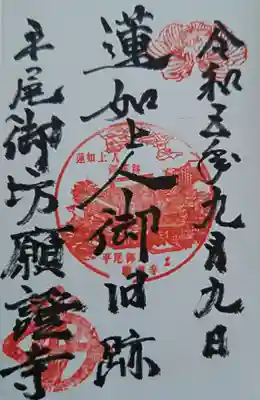 令和五年九月九日
蓮如上人御旧跡
平尾御坊願證寺
蓮如上人
平尾御坊